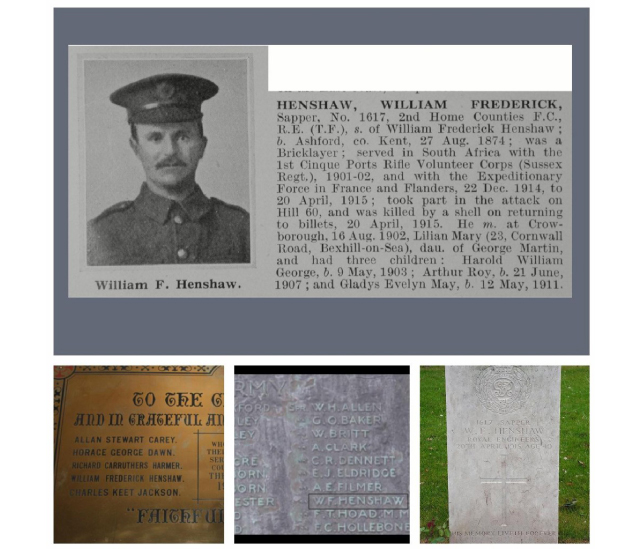 HENSHAW, WILLIAM FREDERICK,
Sapper, No. 1617, 2nd Home Counties F.C.,
R.E. (T.F.), s. of William Frederick Henshaw;
b. Ashford, co. Kent, 27 Aug. 1874; was a
Bricklayer; served in South Africa with the
1st Cinque Ports Rifle Volunteer Corps (Sussex
Regt.), 1901-02, and with the Expeditionary
Force in France and Flanders, 22 Dec. 1914, to
20 April, 1915; took part in the attack on
Hill 60, and was killed by a shell on returning
to billets, 20 April, 1915. He m. at Crow-
borough, 16 Aug. 1902, Lilian Mary (23, Cornwall
Road, Bexhill-on-Sea), dau. of George Martin,
and had three children: Harold William
George, b. 9 May, 1903; Arthur Roy, b. 21 June,
1907; and Gladys Evelyn May, b. 12 May, 1911.
William F. Henshaw.
TO THE G
AND IN GRATEFUL AN
ALLAN STEWART CAREY.
HORACE GEORGE DAWN.
RICHARD CARRUTHERS HARMER.
WILLIAM FREDERICK HENSHAW.
CHARLES KEET JACKSON.
"FAITHFUL
W.H ALLEN
G.O BAKER
W.BRITT
A.CLARK
C.R DENNETT
E.J.ELDRIDGE
A.E FILMER
W.F.HENSHAW
F.T HOAD M M
F.C HOLLEBONE
W. F. HENSHAW
ROYAL ENGINEERS